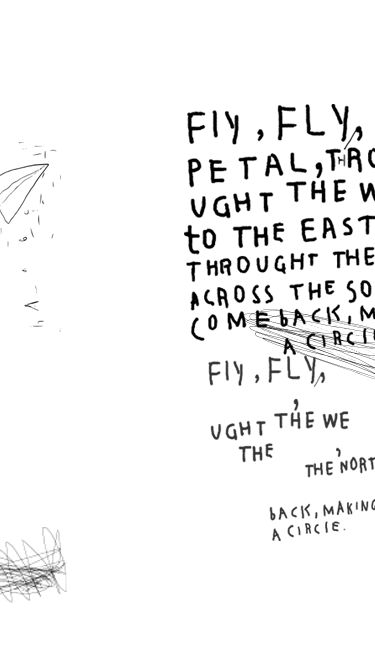 FlY, FLY,
PETAL, THRO
UGHT THE W
tO THE EAST
THROUGHT THE
ACROSS THE SO
COME bACK, M
A CIRClE
FlY, FLY,
,
UGHT THE WE
THE ,
THE NORT
bACK, MAKING
A CIRClE.